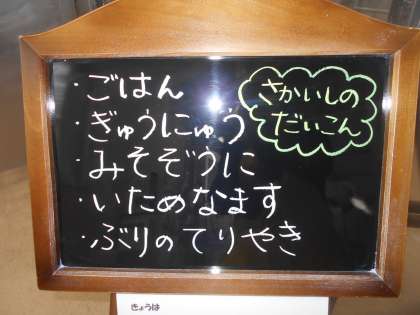 ・ごはん
・ぎゅうにゅう
・みそぞうに
・いためなます
・ぶりのてりやき
さかいしの
だいこん
きょうは